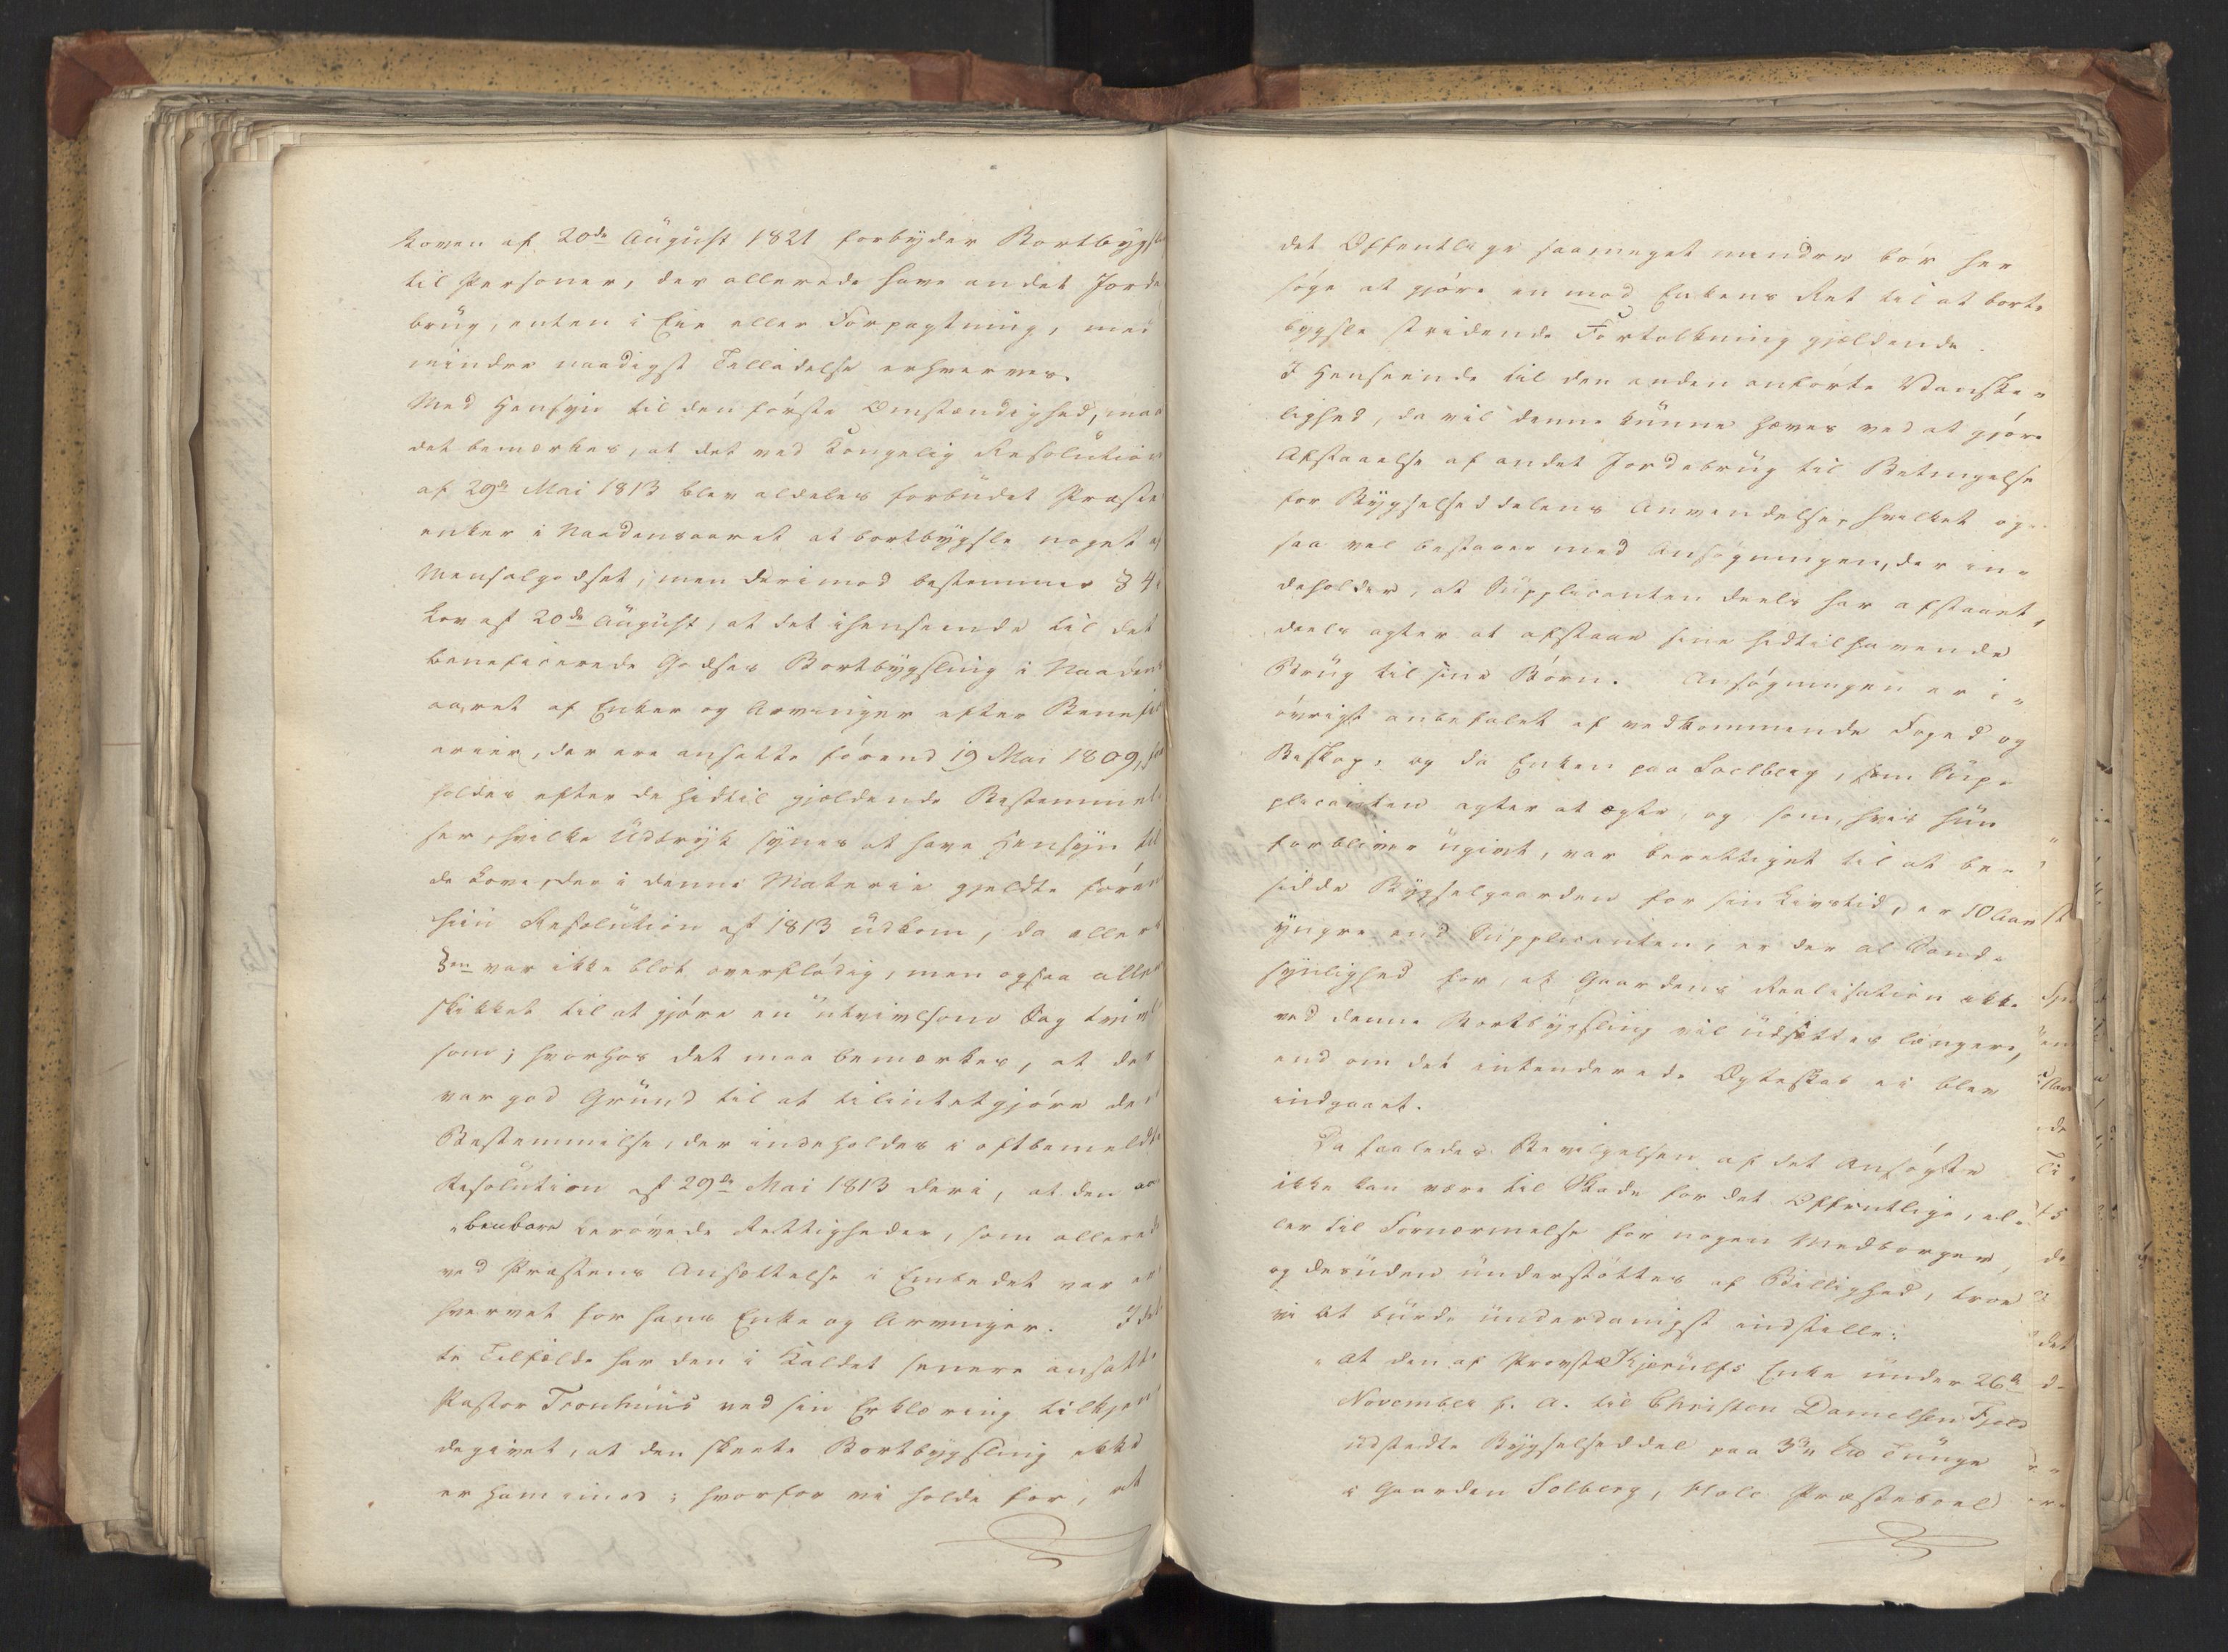 Loven af 20de August 1821 forbyder Bortbygsl
til Personer, der allerede have andet Jorde
brug, enten i Eie eller Forpagtning, med
mindre naadigst Tilladelse erhverves.
Med Hensyn til den første Omstændighed, maa
det bemærkes, at det ved Kongelig Resolution
af 29de Mai 1813 blev aldeles forbudet Præste
enker i Naadensaaret at bortbygsle noget af
Mensalgodset; men derimod bestemmer § 4 i
Lov af 20de August, at det i henseende til det
beneficerede Godses Bortbygsling i Naadens
aaret af Enker og Arvinger efter Benefici
arier, der ere ansatte førend 19 Mai 1809, for
holdes efter de hidtil gjeldende Bestemmel
ser, hvilke Udtryk synes at have Hensyn til
de Love, der i denne Materie gjeldte føren
hiin Resolution af 1813 udkom, da ellers
§en var ikke blot overflødig, men ogsaa alle
skikket til at gjøre en utvivlsom Sag tvivl
som; hvorhos det maa bemærkes, at der
var god Grund til at tilintetgjøre den
Bestemmelse, der indeholdes i oftbemeldte
Resolution af 29de Mai 1813 deri, at den aa
„benbare berøvede Rettigheder, som allerede
ved Præstens Ansættelse i Embedet var er
hvervet for hans Enke og Arvinger. I det
te Tilfælde har den i Kaldet senere ansatte
Pastor Tronhuus ved sin Erklæring tilkjen
degivet, at den skeete Bortbygsling ikke
er ham imod; hvorfor vi holde for, at
det Offentlige saameget mindre bør her
søge at gjøre en mod Enkens Ret til at bort-
bygsle stridende Fortolkning gjeldende.
I Henseende til den anden anførte Vanske„
lighed, da vil denne kunne hæves ved at gjøre
Afstaaelse af andet Jordebrug til Betingelse
for Bygselseddelens Anvendelse, hvilket og
saa vel bestaaer med Ansøgningen, der in„
deholder, at Supplicanten deels har afstaaet,
deels agter at afstaae sine hidtilhavende
Brug til sine Børn. Ansøgningen er i„
øvrigt anbefalet af vedkommende Foged og
Biskop, og da Enken paa Soelberg, som Sup„
plicanten agter at ægte, og som, hvis hun
forbliver ugivt, var berettiget til at be„
sidde Bygselgaarden for sin Livstid, er 10 Aar
yngre end Supplicanten, er der al Sand„
synlighed for, at Gaardens Realisation ikke
ved denne Bortbygsling vil udsættes længere,
end om det intenderede Ægteskab ei blev
indgaaet.
Da saaledes Bevilgelsen af det Ansøgte
ikke kan være til Skade for det Offentlige, el„
ler til Fornærmelse for nogen Medborger,
og desuden understøttes af Billighed, troe
vi at burde underdanigst indstille:
„at den af Provst Kjerulfs Enke under 26de
November f. A. til Christen Danielsen Fjeld
udstedte Bygselseddel paa 3
i Gaarden Solberg, Hole Præsteboel